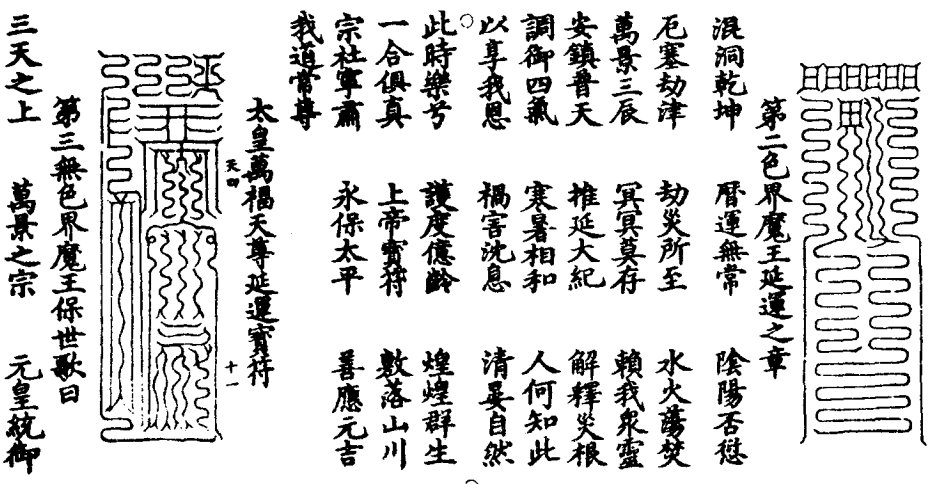 第二色界魔王延運之章
混洞乾坤 曆運無常 陰陽否愆
厄塞劫津 劫災所至 水火蕩焚
萬景三辰 冥冥莫存 賴我衆靈
安鎮普天 推延大紀 解釋災根
調御四氣 寒暑相和 人何知此
以享我恩 禍害沈息 清晏自然
此時樂兮 護度億齡 煌煌群生
一合俱真 上帝寶符 敷落山川
宗社寧肅 永保太平 善應元吉
我道常尊
太皇萬福天尊延運寶符
天四 十一
第三無色界魔王保世歌曰
三天之上 萬景之宗 元皇統御